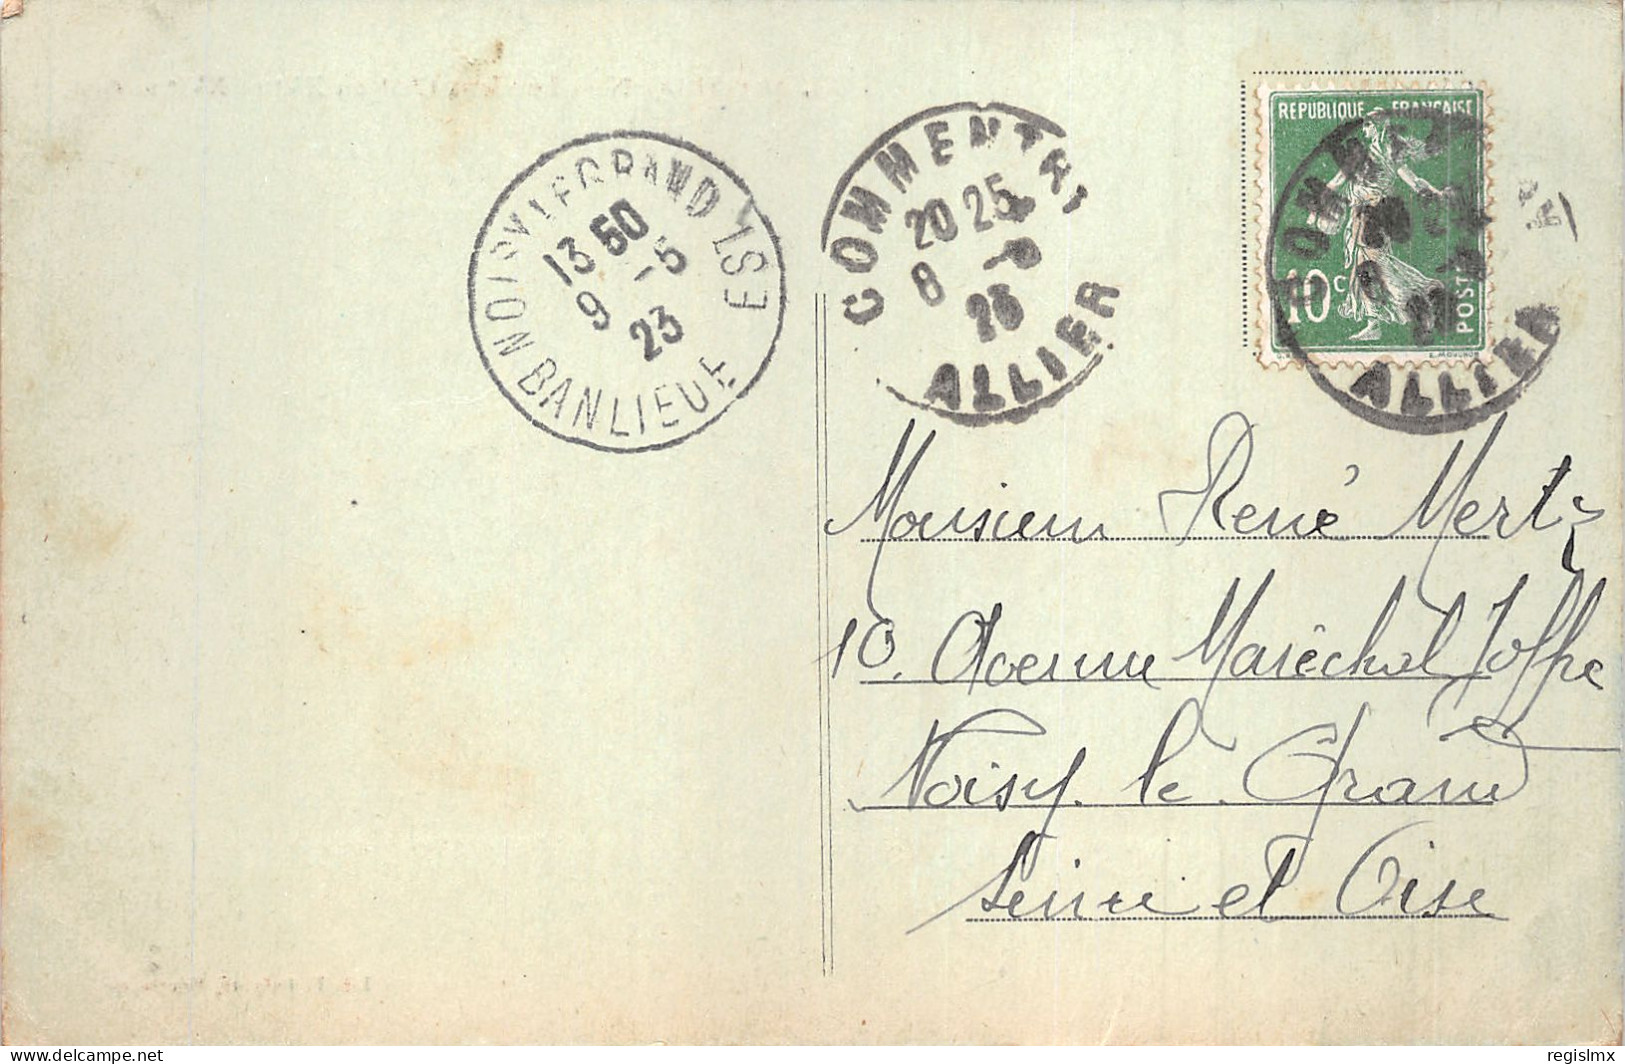 NOISY LE GRAND
ST E
13 50
9 -5
23
BANLIEUE
COMMENTRY
20 25
8 -5
23
ALLIER
REPUBLIQUE FRANÇAISE
10 c
POSTES
ALLIER
Monsieur René Mertz
10. Avenue Maréchal Joffre
Noisy. le. Grand
Seine et Oise
delcampe.net
regislmx